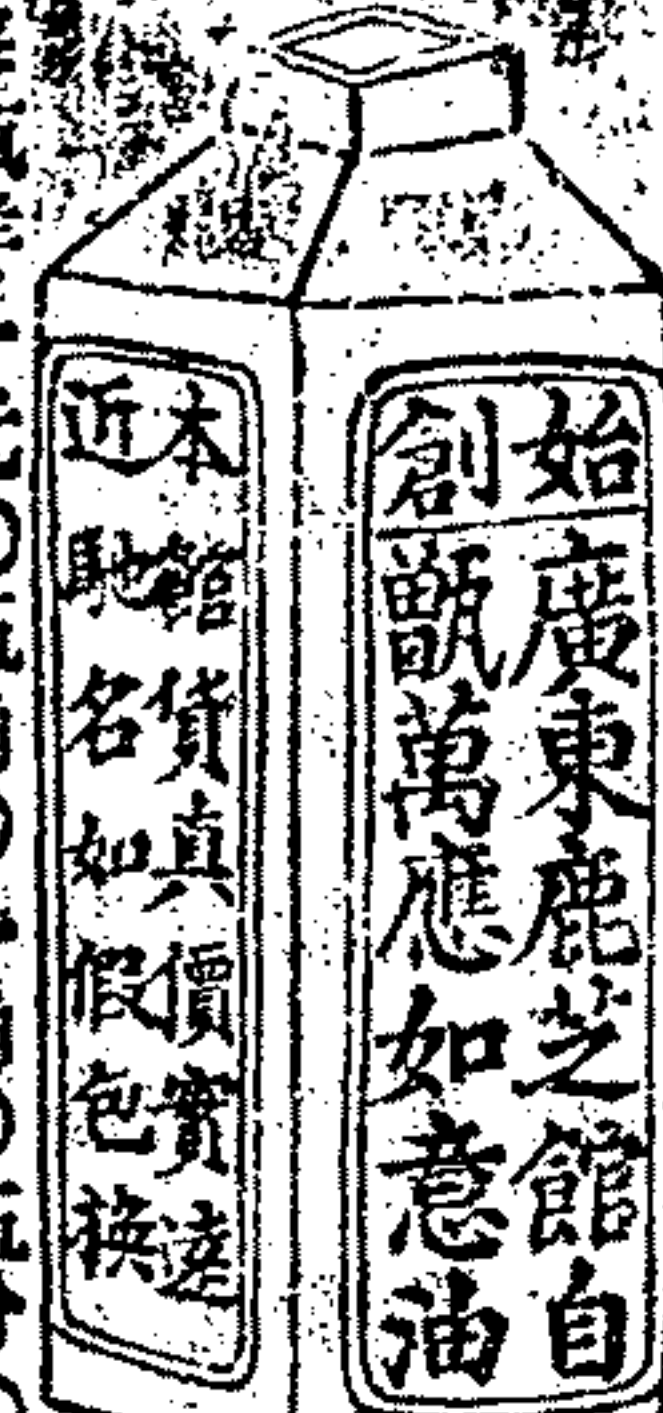 始創
廣東鹿芝館自
甑萬應如意油
本舘貨真價實遠
近馳名如假包換